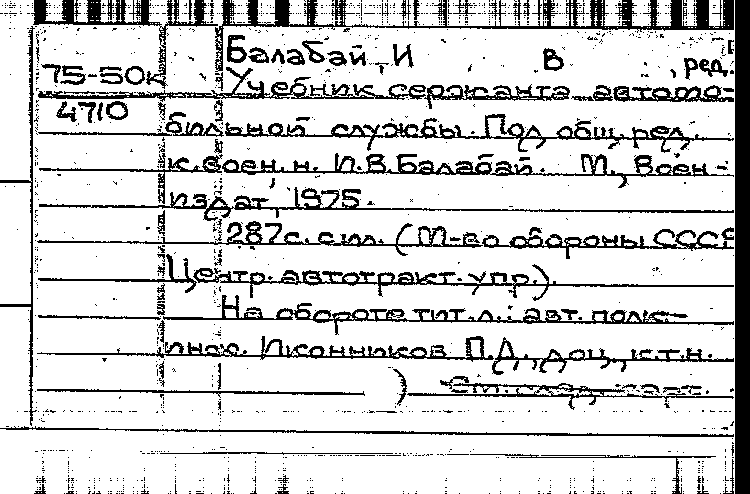 Балабай, И В , ред.
75-50к Учебник сержанта автомо-
4710
бильной службы. Под общ. ред.
к. воен. н. И.В. Балабай. М., Воен-
издат, 1975.
287с. с илл. (М-во обороны СССР
Центр. автотракт. упр.).
На обороте тит. л.: авт. полк-
Иконников П.Д., доц., к.т.н.
См. след. карт.